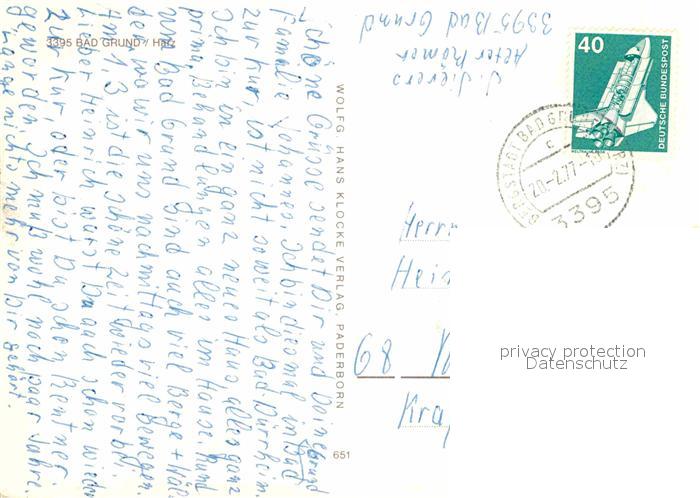 3395 BAD GRUND / Harz
Schöne Grüsse sendet Dir und Deine
Familie Johannes, Ich bin diesmal in Bad Grund
zur Kur, ist nicht so weit als Bad-Dürrheim.
Ich bin in ein ganz neues Haus alles ganz
prima, Behandlungen alles im Hause. Rund
um Bad Grund sind auch viel Berge + Wäl-
der wo wir uns nachmittags viel bewegen.
Am 1.3 ist die schöne Zeit wieder vorbei.
Lieber Heinrich warst Du auch schon wieder
zur Kur, oder bist Du schon Rentner
geworden. Ich muß wohl noch paar Jahre.
Lange nichts mehr von Dir gehört.
WOLFG. HANS KLOCKE VERLAG, PADERBORN
651
J. Sievers
Alter Römer
3395 Bad Grund
40
DEUTSCHE BUNDESPOST
BERGSTADT BAD GRUND (HARZ)
c
20.-2.77
3395
Herrn
Hei
68
Kra
privacy protection
Datenschutz